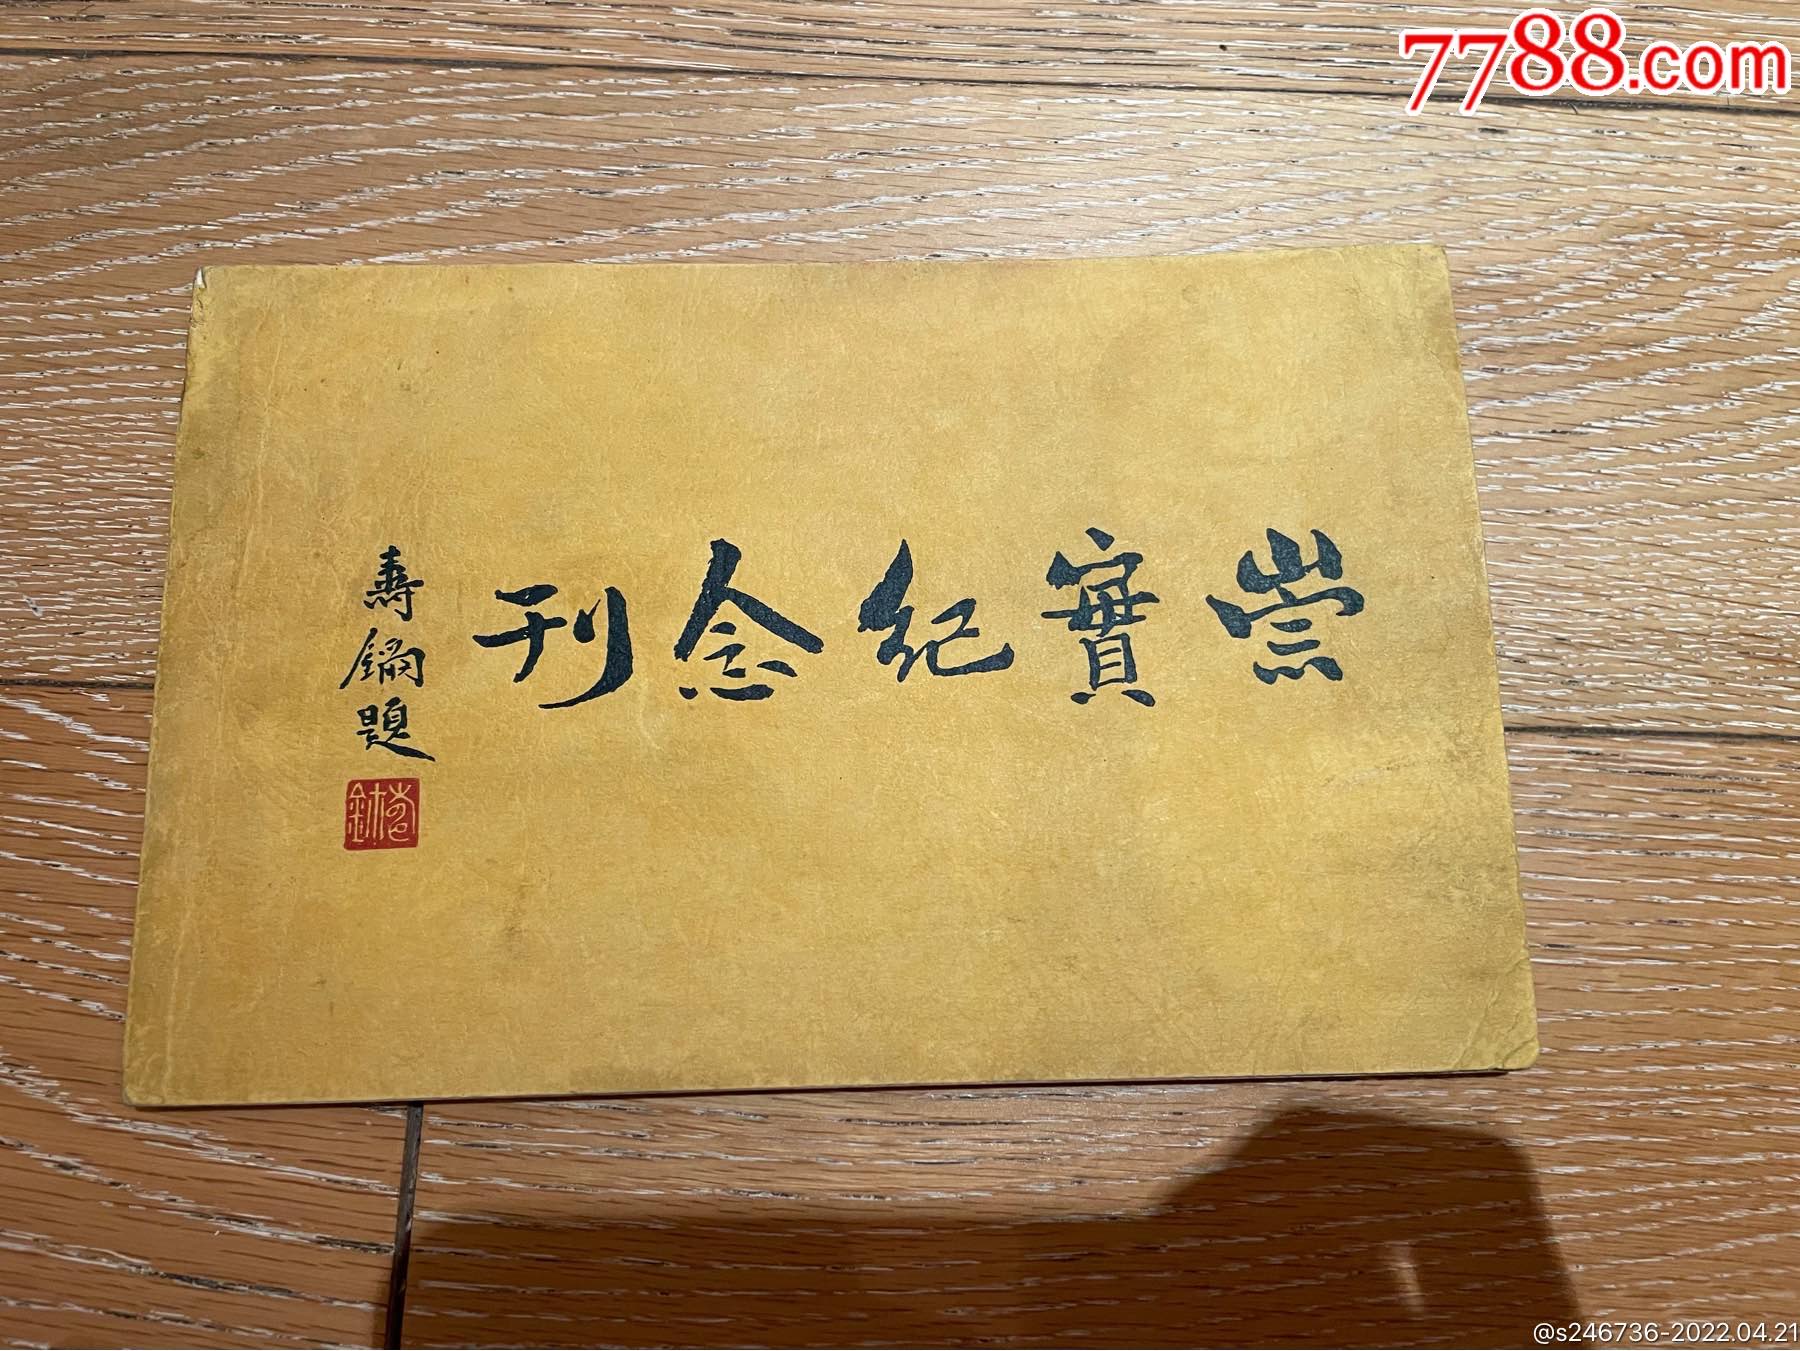 7788.com
崇實紀念刊
壽
題
@s246736-2022.04.21